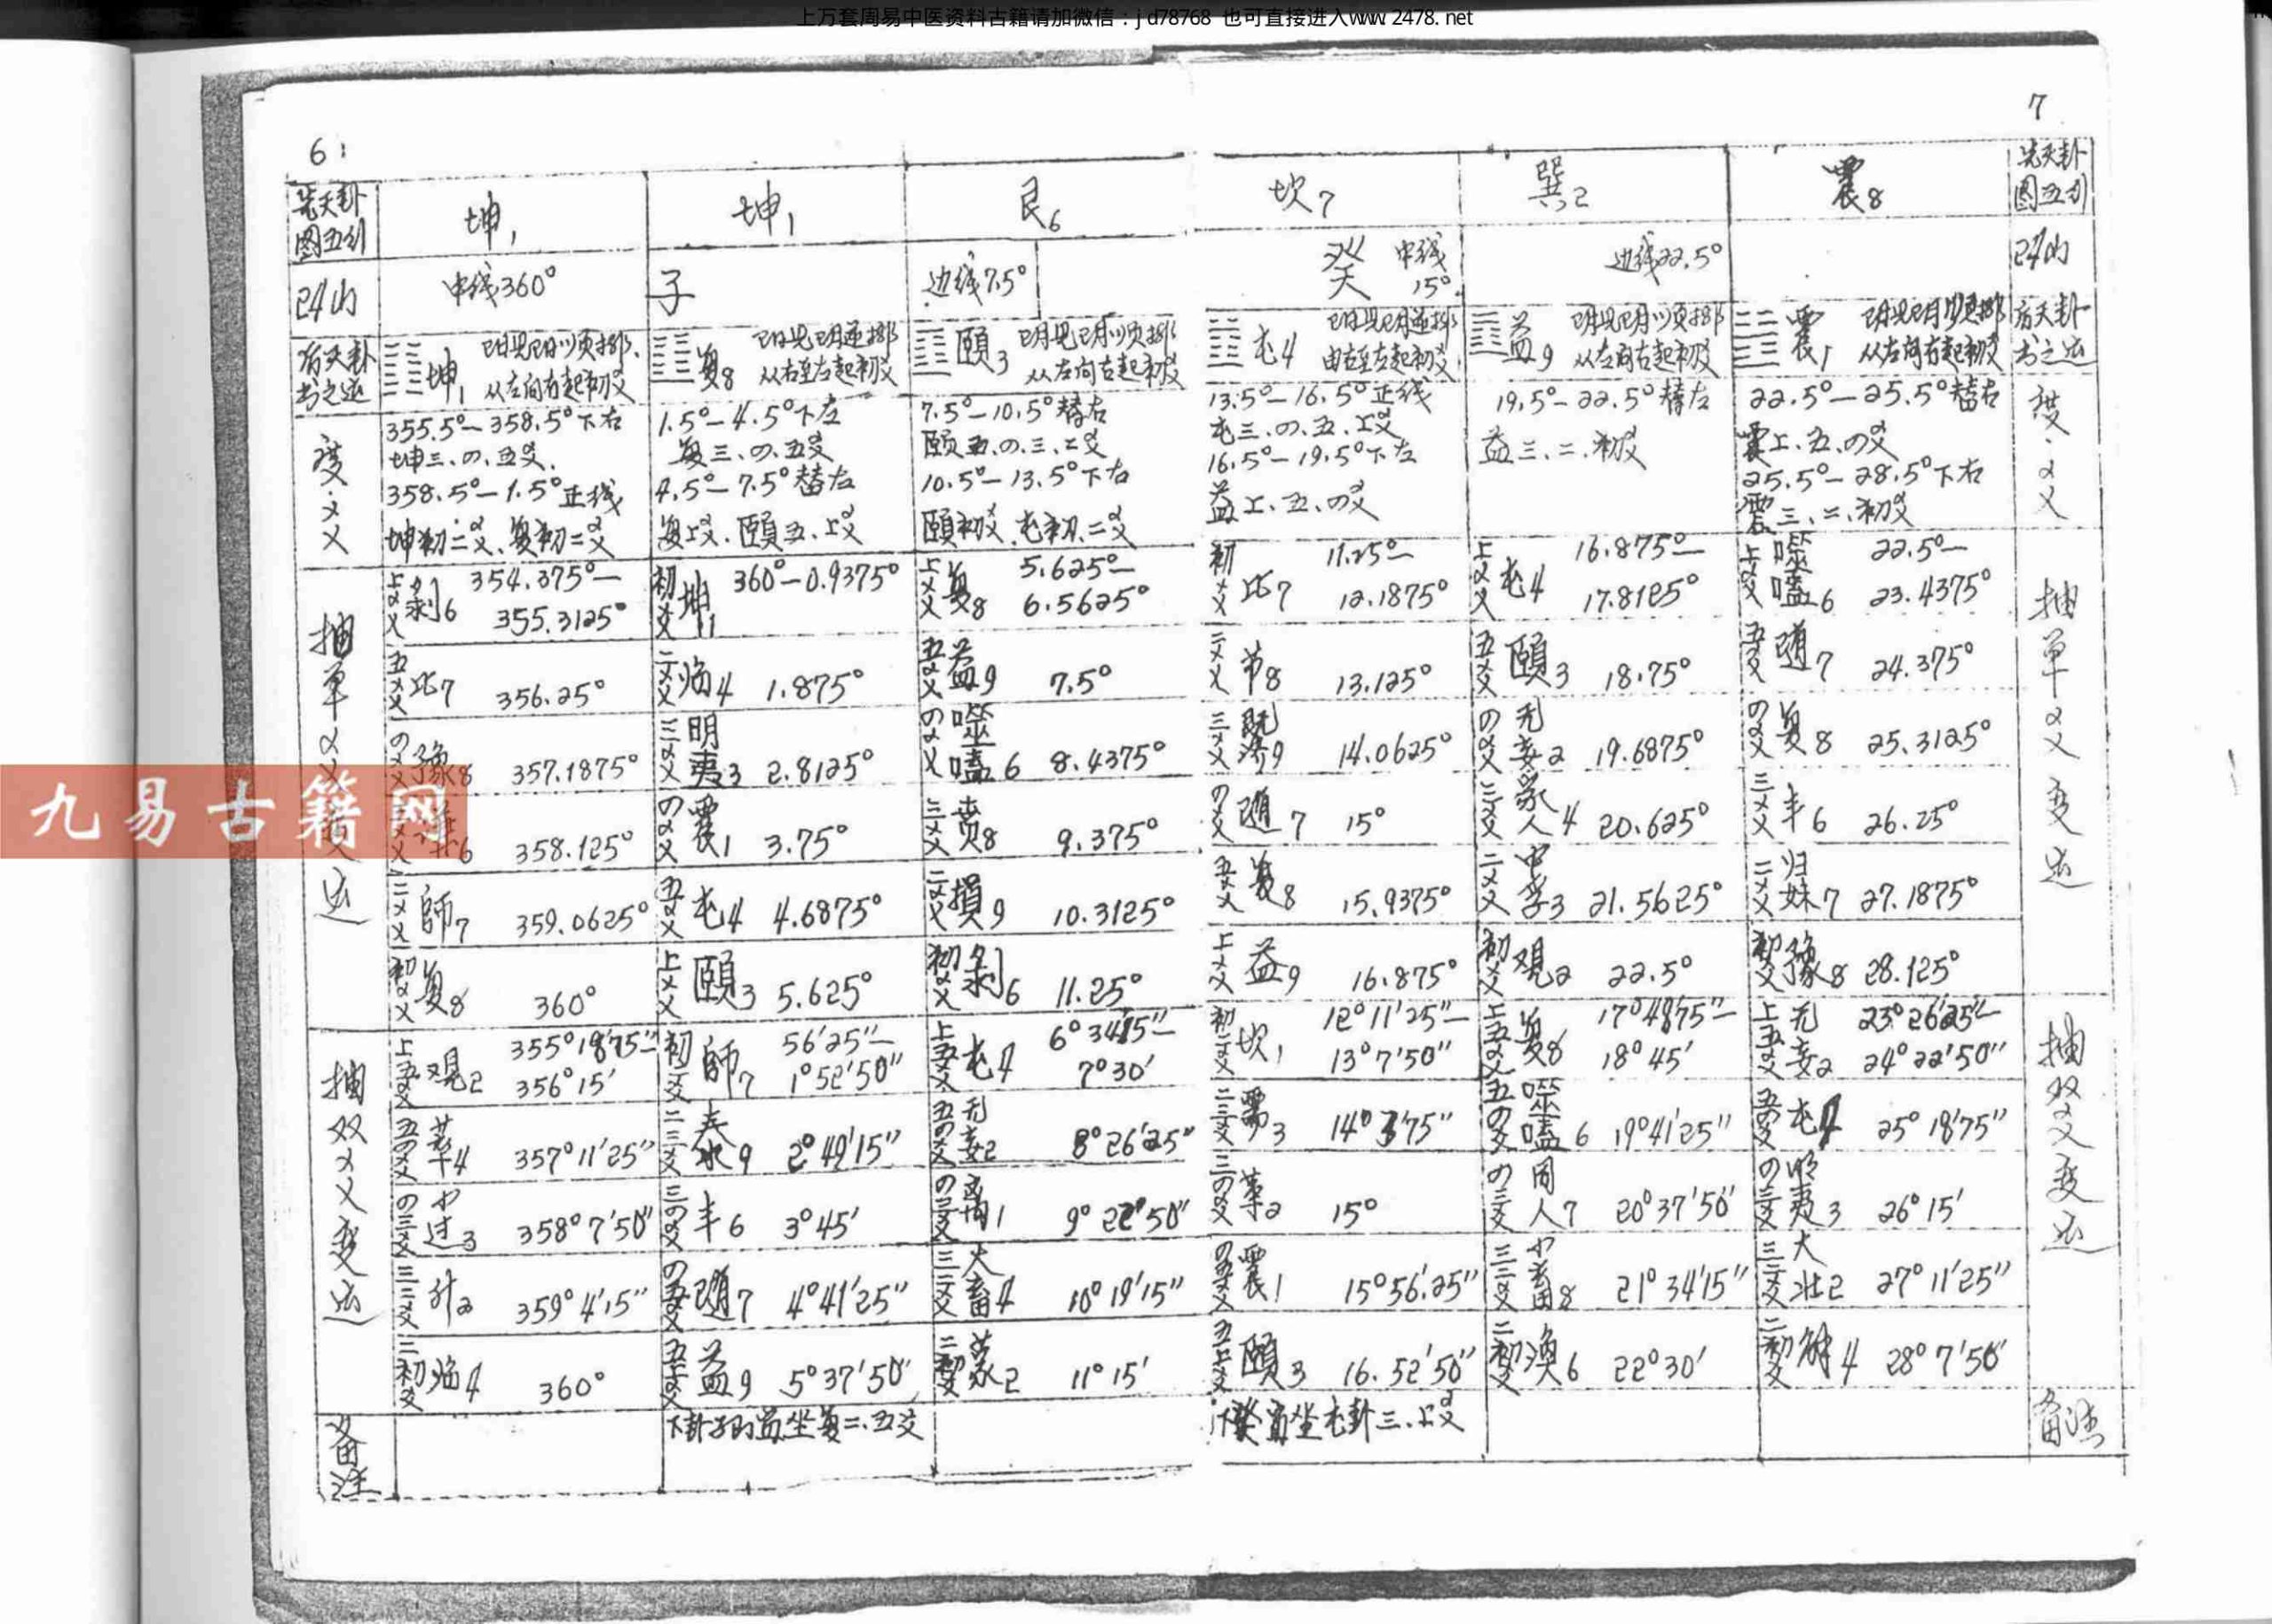 上万套周易中医资料古籍请加微信：jd78768 也可直接进入www.2478.net
6
先天卦 坤1 坤1 艮6
24山 中线360° 子 边线7.5°
坤1 从左向右起初爻
复8 从右至左起初爻
頤3 从左向右起初爻
度.爻
355.5°—358.5°下右
坤三、四、五爻.
358.5°—1.5°正线
坤初二爻、复初二爻
1.5°—4.5°下左
复三、四、五爻
4.5°—7.5°替左
复上爻、頤五、上爻
7.5°—10.5°替右
頤五、四、三、二爻
10.5°—13.5°下右
頤初爻、屯初、二爻
抽单爻变法
上爻 剥6 354.375°—355.3125°
五爻 比7 356.25°
四爻 豫8 357.1875°
358.125°
二爻 師7 359.0625°
初爻 复8 360°
初爻 坤1 360°—0.9375°
二爻 临4 1.875°
三爻 明夷3 2.8125°
四爻 震1 3.75°
五爻 屯4 4.6875°
上爻 頤3 5.625°
上爻 复8 5.625°—6.5625°
五爻 益9 7.5°
四爻 噬嗑6 8.4375°
三爻 贲8 9.375°
二爻 損9 10.3125°
初爻 剥6 11.25°
抽双爻变法
上五爻 观2 355°18'75"—356°15'
五四爻 萃4 357°11'25"
四三爻 小过3 358°7'50"
三二爻 升2 359°4'15"
二初爻 临4 360°
初二爻 師7 56'25"—1°52'50"
二三爻 泰9 2°49'15"
三四爻 丰6 3°45'
四五爻 随7 4°41'25"
五上爻 益9 5°37'50"
上五爻 屯4 6°34'15"—7°30'
五四爻 无妄2 8°26'25"
四三爻 离1 9°22'50"
三二爻 大畜4 10°19'15"
二初爻 蒙2 11°15'
备注
下卦子的首坐复二、五爻
7
坎7 巽2 震8 先天卦
癸 中线15° 边线22.5° 24山
屯4 由右至左起初爻
益9 从左向右起初爻
震1 从左向右起初爻
度.爻
13.5°—16.5°正线
屯三、四、五、上爻
16.5°—19.5°下左
益上、五、四爻
19.5°—22.5°替左
益三、二、初爻
22.5°—25.5°替右
震上、五、四爻
25.5°—28.5°下右
震三、二、初爻
抽单爻变法
初爻 比7 11.25°—12.1875°
二爻 节8 13.125°
三爻 既济9 14.0625°
四爻 随7 15°
五爻 复8 15.9375°
上爻 益9 16.875°
上爻 屯4 16.875°—17.8125°
五爻 頤3 18.75°
四爻 无妄2 19.6875°
三爻 家人4 20.625°
二爻 中孚3 21.5625°
初爻 观2 22.5°
上爻 噬嗑6 22.5°—23.4375°
五爻 随7 24.375°
四爻 复8 25.3125°
三爻 丰6 26.25°
二爻 归妹7 27.1875°
初爻 豫8 28.125°
抽双爻变法
初二爻 坎1 12°11'25"—13°7'50"
二三爻 需3 14°3'75"
三四爻 革2 15°
四五爻 震1 15°56'.25"
五上爻 頤3 16.52'50"
上五爻 复8 17°48'75"—18°45'
五四爻 噬嗑6 19°41'25"
四三爻 同人7 20°37'50"
三二爻 小畜8 21°34'15"
二初爻 涣6 22°30'
上五爻 无妄2 23°26'25"—24°22'50"
五四爻 屯4 25°18'75"
四三爻 明夷3 26°15'
三二爻 大壮2 27°11'25"
二初爻 解4 28°7'50"
屯卦三、上爻
备注
九易古籍网